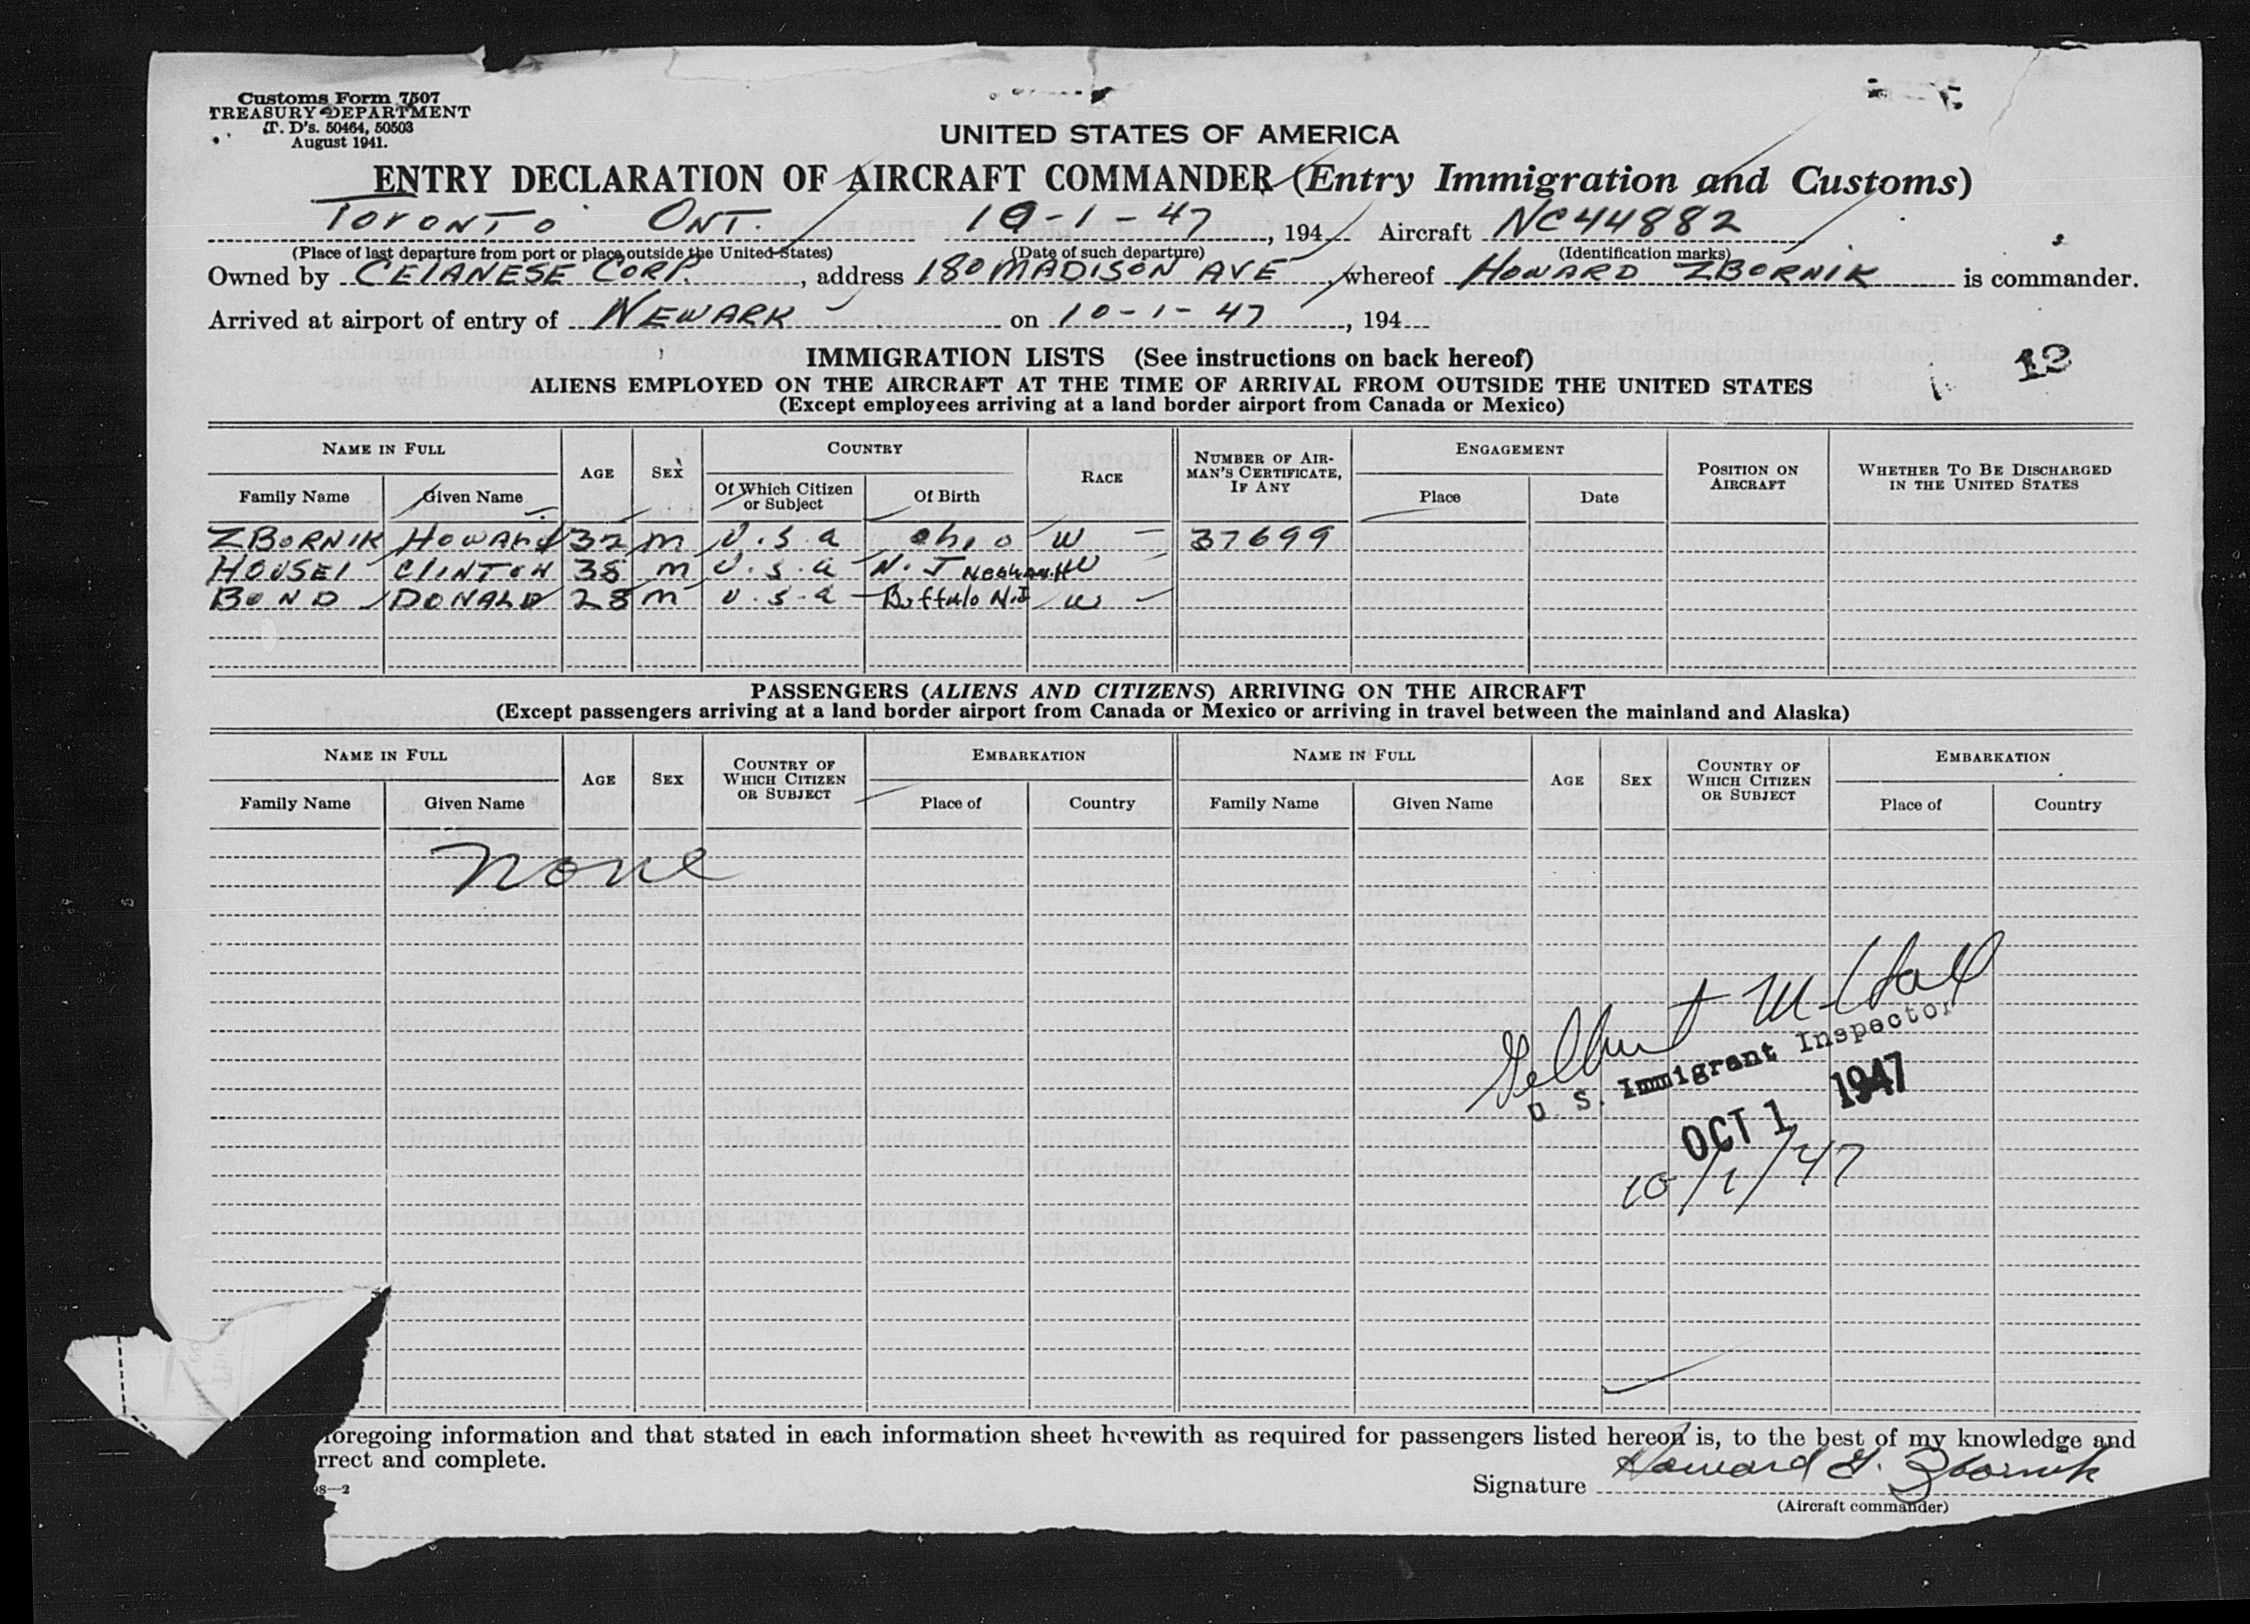 Customs Form 7507
TREASURY DEPARTMENT
T. D's. 50464, 50503
August 1941.
UNITED STATES OF AMERICA
ENTRY DECLARATION OF AIRCRAFT COMMANDER (Entry Immigration and Customs)
TORONTO ONT. 10-1-47, 194 Aircraft NC44882
(Place of last departure from port or place outside the United States) (Date of such departure) (Identification marks)
Owned by CELANESE CORP., address 180 MADISON AVE, whereof HOWARD ZBORNIK is commander.
Arrived at airport of entry of NEWARK on 10-1-47, 194
IMMIGRATION LISTS (See instructions on back hereof)
12
ALIENS EMPLOYED ON THE AIRCRAFT AT THE TIME OF ARRIVAL FROM OUTSIDE THE UNITED STATES
(Except employees arriving at a land border airport from Canada or Mexico)
NAME IN FULL AGE SEX COUNTRY RACE NUMBER OF AIRMAN'S CERTIFICATE, IF ANY ENGAGEMENT POSITION ON AIRCRAFT WHETHER TO BE DISCHARGED IN THE UNITED STATES
Family Name Given Name Of Which Citizen or Subject Of Birth Place Date
ZBORNIK HOWARD 32 m U.S.a ohio W 37699
HOUSEI CLINTON 38 m U.S.a N.J W
BOND DONALD 28 m U.S.a Buffalo N.J W
PASSENGERS (ALIENS AND CITIZENS) ARRIVING ON THE AIRCRAFT
(Except passengers arriving at a land border airport from Canada or Mexico or arriving in travel between the mainland and Alaska)
NAME IN FULL AGE SEX COUNTRY OF WHICH CITIZEN OR SUBJECT EMBARKATION NAME IN FULL AGE SEX COUNTRY OF WHICH CITIZEN OR SUBJECT EMBARKATION
Family Name Given Name Place of Country Family Name Given Name Place of Country
none
U. S. Immigrant Inspector
OCT 1 1947
10/1/47
foregoing information and that stated in each information sheet herewith as required for passengers listed hereon is, to the best of my knowledge and
rrect and complete.
8—2
Signature Howard G. Zbornik
(Aircraft commander)